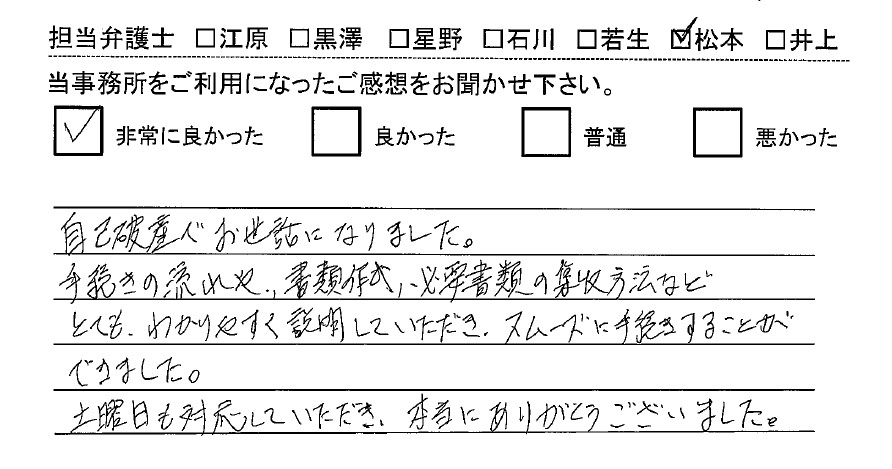 担当弁護士 □江原 □黒澤 □星野 □石川 □若生 ☑松本 □井上
当事務所をご利用になったご感想をお聞かせ下さい。
☑ 非常に良かった □ 良かった □ 普通 □ 悪かった
自己破産でお世話になりました。
手続きの流れや、書類作成、必要書類の集収方法など
とても、わかりやすく説明していただき、スムーズに手続きすることが
できました。
土曜日も対応していただき、本当にありがとうございました。